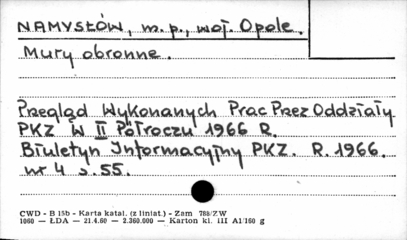 NAMYSŁÓW, m. p., woj. Opole.
Mury obronne.
Przegląd Wykonanych Prac Przez Oddziały
PKZ W II Półroczu 1966 R.
Biuletyn Informacyjny PKZ. R. 1966.
nr 4 s. 55.
CWD - B 15b - Karta katal. (z liniat.) - Zam 788/ZW
1060 — ŁDA — 21.4.60 - 2.360.000 — Karton kl. III A1/160 g